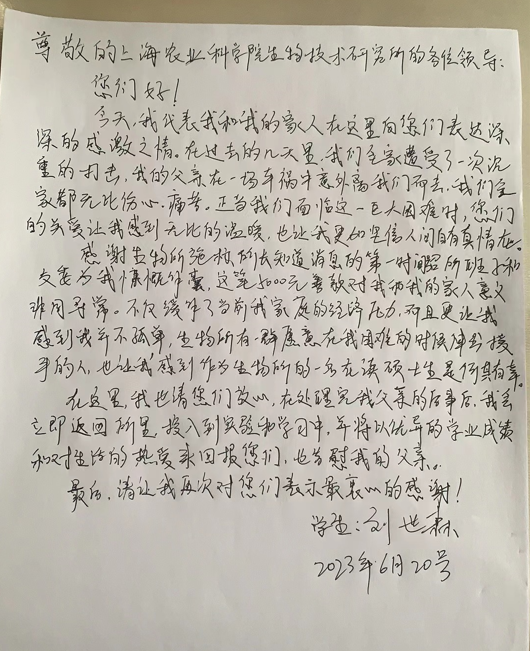 尊敬的上海农业科学院生物技术研究所的各位领导:
您们好!
今天,我代表我和我的家人在这里向您们表达深
深的感激之情。在过去的几天里,我们全家遭受了一次沉
重的打击,我的父亲在一场车祸中意外离我们而去,我们全
家都无比伤心、痛苦。正当我们面临这一巨大困难时,您们
的关爱让我感到无比的温暖,也让我更加坚信人间自有真情在。
感谢生物所施标所长知道消息的第一时间跟所班子和
支委为我慷慨解囊,这笔5000元善款对我和我的家人意义
非同寻常。不仅缓解了当前我家庭的经济压力,而且更让我
感到我并不孤单,生物所有一群愿意在我困难的时候伸出援
手的人,也让我感到作为生物所的一名在读硕士生是何其有幸。
在这里,我也请您们放心,在处理完我父亲的后事后,我会
立即返回所里,投入到实验和学习中,并将以优异的学业成绩
和对生活的热爱来回报您们,也告慰我的父亲。
最后,请让我再次对您们表示最衷心的感谢!
学生:刘世
2023年6月20号